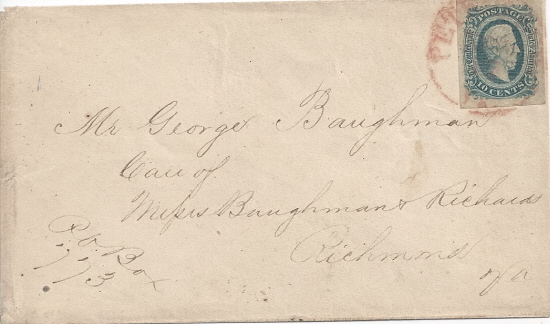 PE
POSTAGE
10 CENTS
Mr George Baughman
Care of
Messrs Baughman & Richards
Richmond
Va
P.O. Box